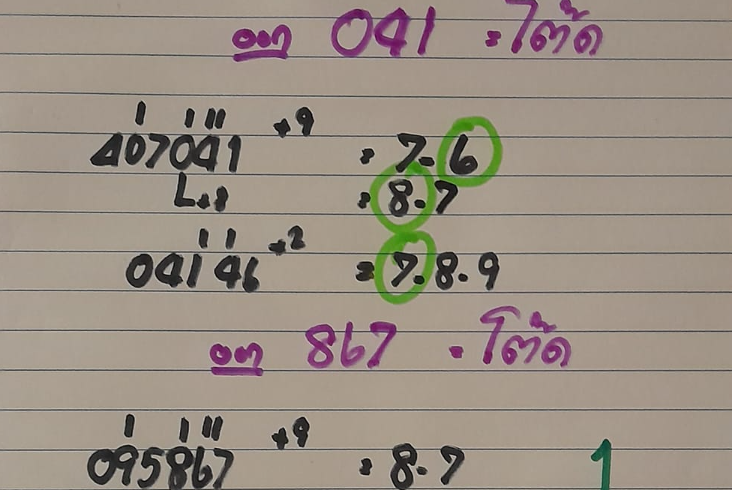 ออก 041 = โต๊ด
407041 +9 = 7-6
L.. = 8-7
04146 +2 = 7-8-9
ออก 867 = โต๊ด
095867 +9 = 8-7
1